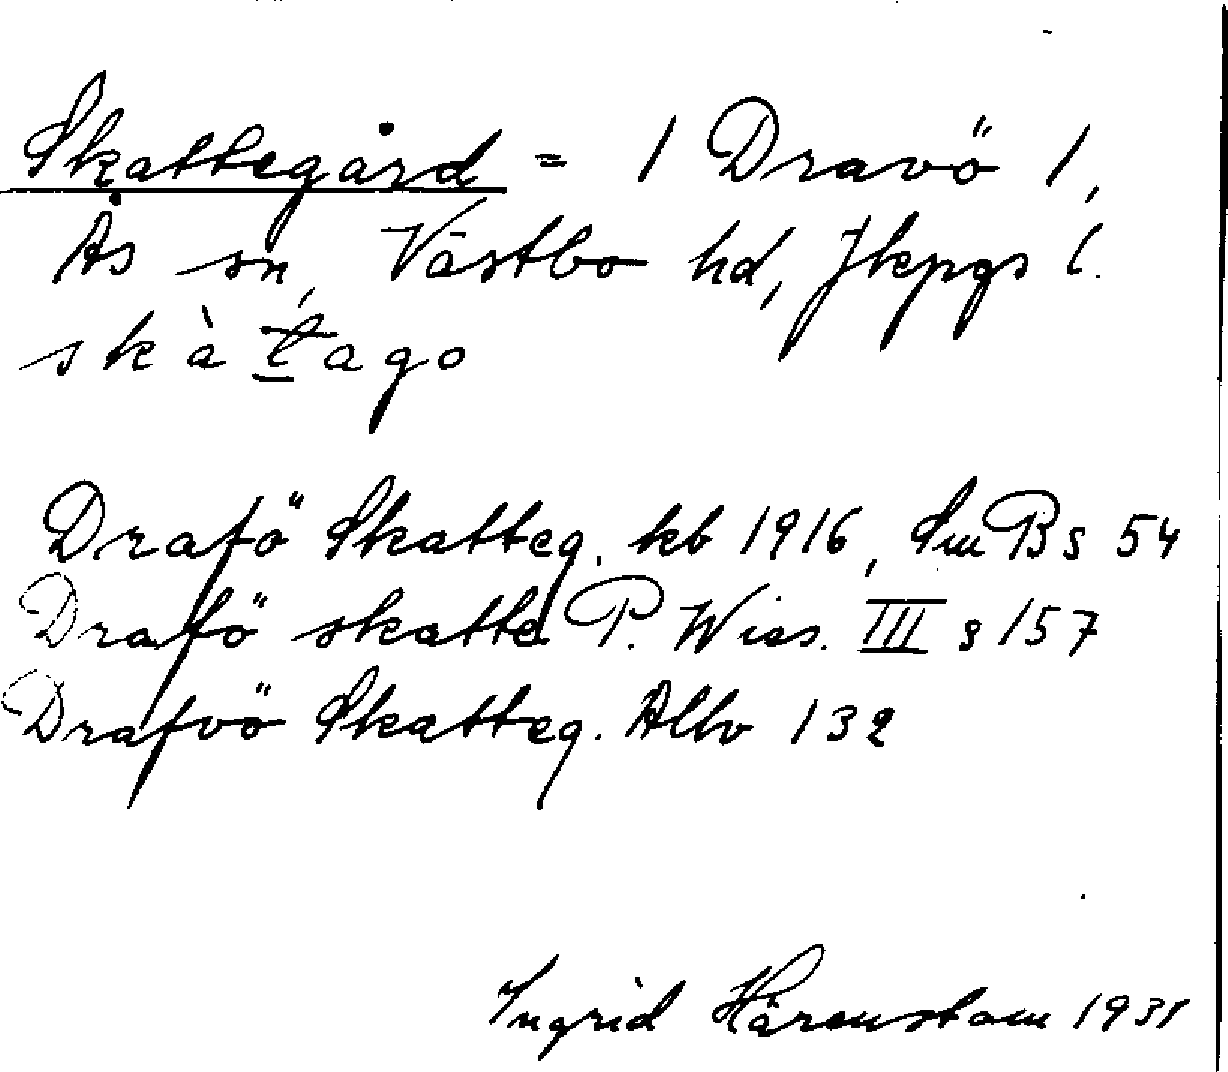 Skattegård = 1 Dravö 1,
Ås sn, Västbo hd, Jkpgs l.
skàt̠ago
Drafö Skatteg. kb 1916, SmB s 54
Drafö skatte P. Wies. III s 157
Drafvö Skatteg. Allv 132
Ingrid Härenstam 1931